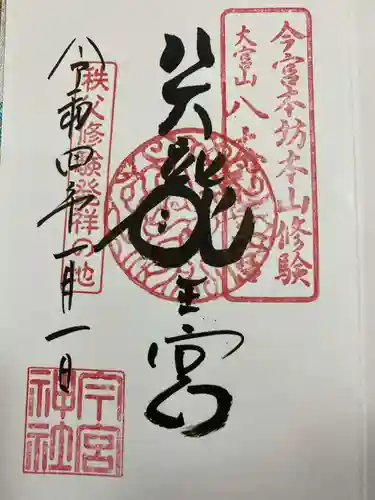 今宮本坊本山修験
大宮山 八
八大龍王宮
秩父修験発祥の地
令和四年一月一日
今宮
神社